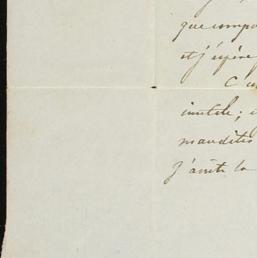 que compo
et j'espère
C
inutile;
maudites
J'arrête la